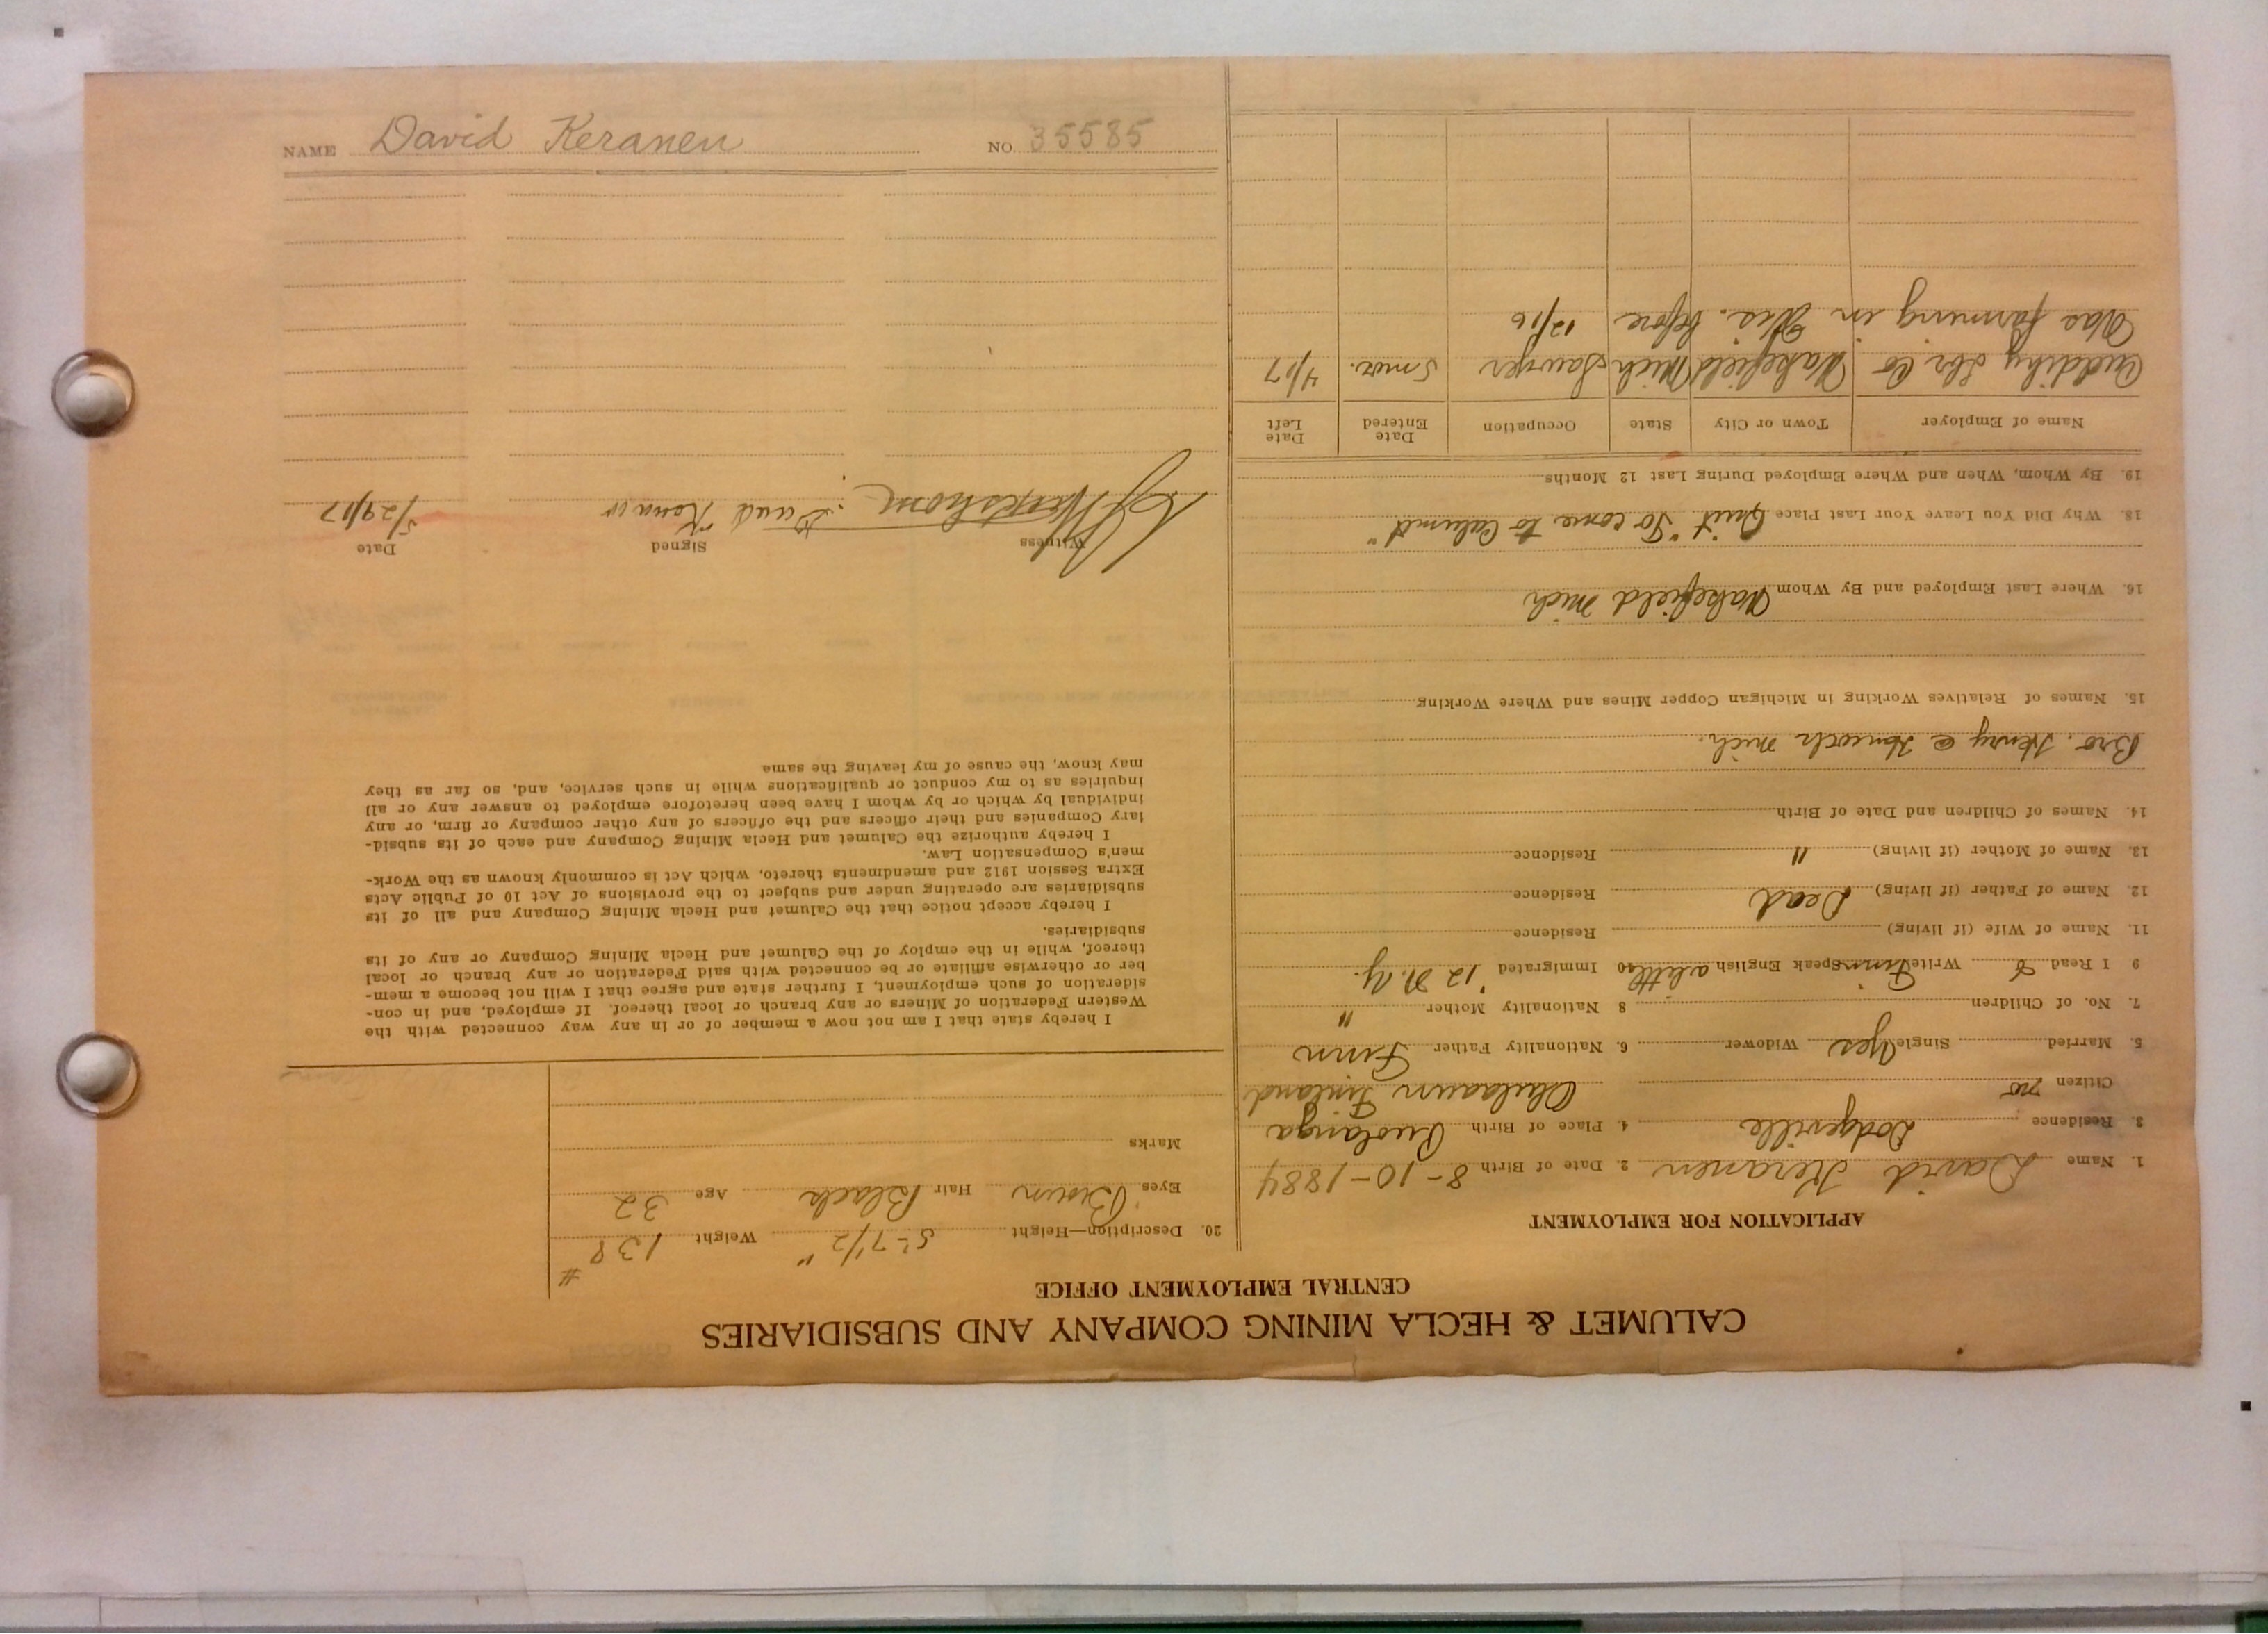 NAME David Keranen NO. 35585
CALUMET & HECLA MINING COMPANY AND SUBSIDIARIES
CENTRAL EMPLOYMENT OFFICE
APPLICATION FOR EMPLOYMENT
1. Name David Keranen 2. Date of Birth 8-10-1884
3. Residence Dodgeville 4. Place of Birth
Citizen no Finland
5. Married Single Yes Widower 6. Nationality Father Finn
7. No. of Children 8 Nationality Mother "
9 I Read & Write Finn Speak English a little 10 Immigrated '12 N.Y.
11. Name of Wife (if living) Residence
12. Name of Father (if living) Dead Residence
13. Name of Mother (if living) " Residence
14. Names of Children and Date of Birth
Bro. Henry @ Mich.
15. Names of Relatives Working in Michigan Copper Mines and Where Working
16. Where Last Employed and By Whom Wakefield Mich
18. Why Did You Leave Your Last Place Quit "To come to Calumet"
19. By Whom, When and Where Employed During Last 12 Months
Name of Employer Town or City State Occupation Date Entered Date Left
Lbr. Co Wakefield Mich Sawyer 5 mos. 4/17
Was farming in before 12/16
20. Description—Height 5'-7 1/2" Weight 138 #
Eyes Brown Hair Black Age 32
Marks
I hereby state that I am not now a member of or in any way connected with the
Western Federation of Miners or any branch or local thereof. If employed, and in con-
sideration of such employment, I further state and agree that I will not become a mem-
ber or otherwise affiliate or be connected with said Federation or any branch or local
thereof, while in the employ of the Calumet and Hecla Mining Company or any of its
subsidiaries.
I hereby accept notice that the Calumet and Hecla Mining Company and all of its
subsidiaries are operating under and subject to the provisions of Act 10 of Public Acts
Extra Session 1912 and amendments thereto, which Act is commonly known as the Work-
men's Compensation Law.
I hereby authorize the Calumet and Hecla Mining Company and each of its subsid-
iary Companies and their officers and the officers of any other company or firm, or any
individual by which or by whom I have been heretofore employed to answer any or all
inquiries as to my conduct or qualifications while in such service, and, so far as they
may know, the cause of my leaving the same
Witness Signed Date
David 5/29/17